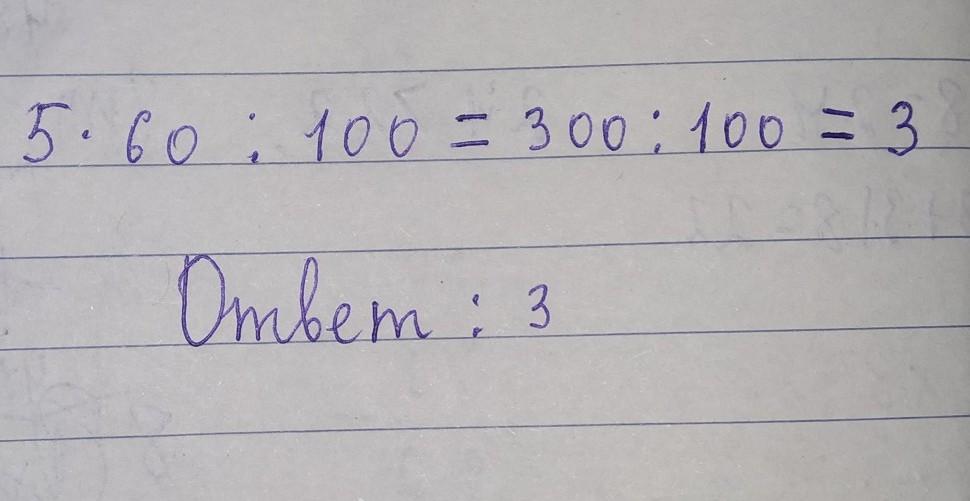 5 · 60 : 100 = 300 : 100 = 3
Ответ : 3